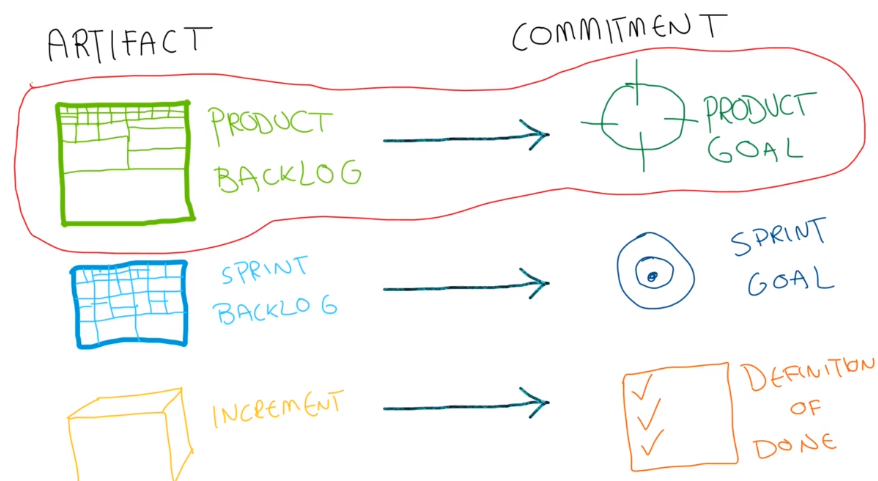 ARTIFACT
COMMITMENT
PRODUCT
BACKLOG
PRODUCT
GOAL
SPRINT
BACKLOG
SPRINT
GOAL
INCREMENT
DEFINITION
OF
DONE